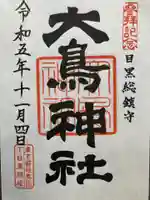 登拝記念
目黒総鎮守
大鳥神社
令和五年十一月四日